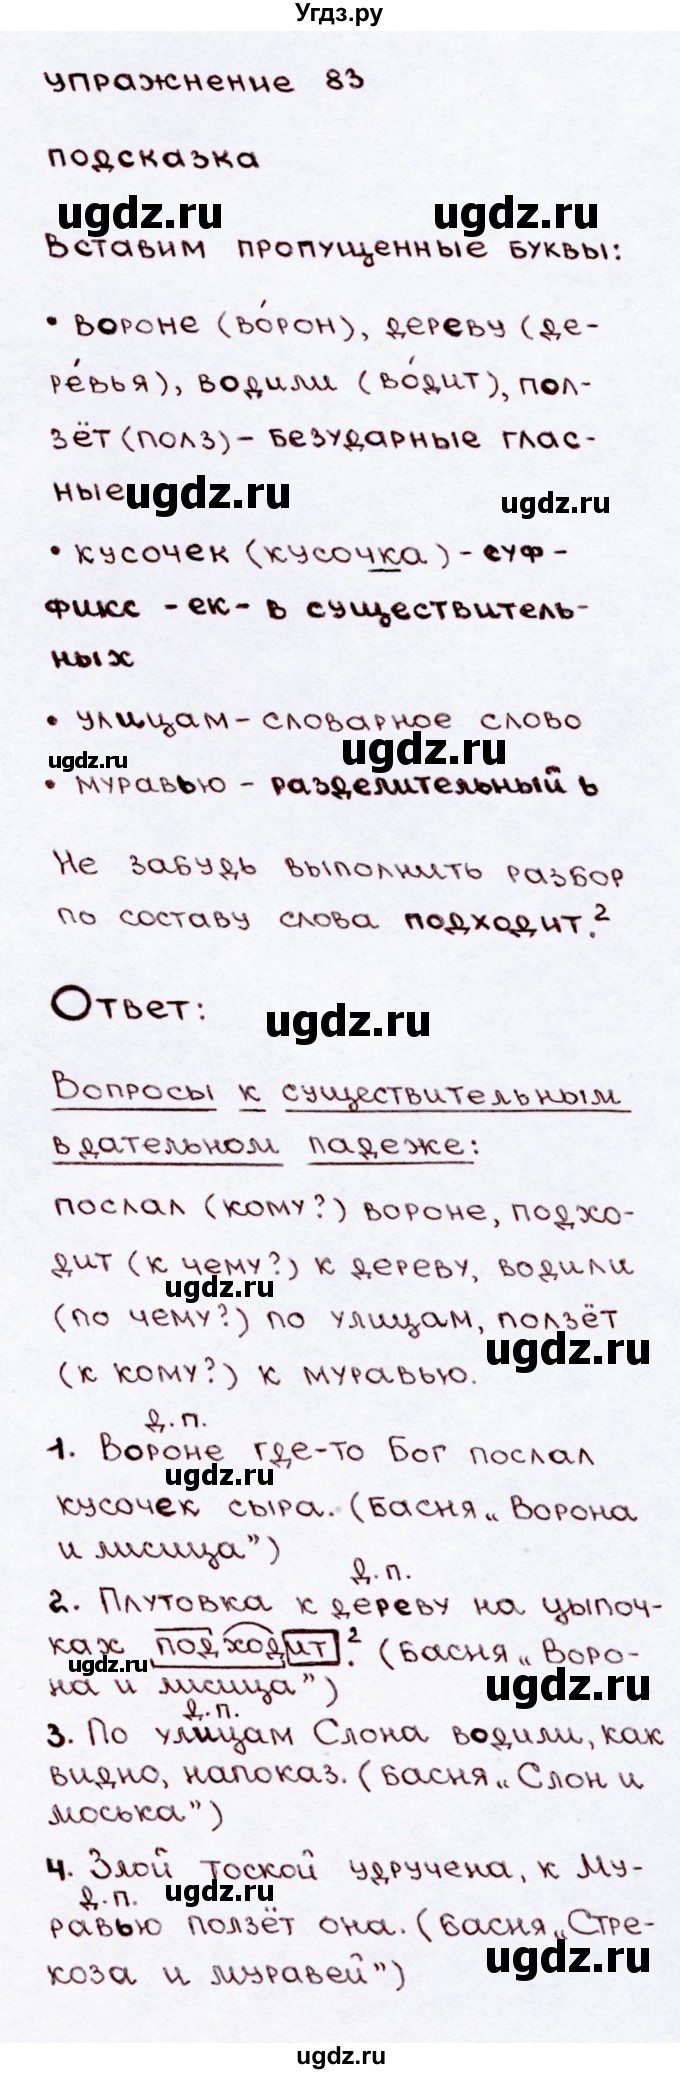 Угдз.ру
упражнение 83
подсказка
ugdz.ru ugdz.ru
Вставим пропущенные буквы:
• вороне (во́рон), дереву (де-
ре́вья), водили (во́дит), пол-
зёт (полз) - безударные глас-
ные
ugdz.ru ugdz.ru
• кусочек (кусочка) - суф-
фикс -ек- в существитель-
ных
• улицам - словарное слово
ugdz.ru ugdz.ru
• муравью - разделительный ь
Не забудь выполнить разбор
по составу слова подходит.²
Ответ:
ugdz.ru
Вопросы к существительным
в дательном падеже:
послал (кому?) вороне, подхо-
дит (к чему?) к дереву, водили
ugdz.ru
(по чему?) по улицам, ползёт
ugdz.ru
(к кому?) к муравью.
д.п.
1. Вороне где-то Бог послал
ugdz.ru
кусочек сыра. (Басня „Ворона
и лисица”)
д.п.
2. Плутовка к дереву на цыпоч-
ках подходит.² (Басня „Воро-
ugdz.ru
на и лисица”)
ugdz.ru
д.п.
3. По улицам Слона водили, как
видно, напоказ. (Басня „Слон и
моська”)
4. Злой тоской удручена, к Му-
д.п.
ugdz.ru
равью ползёт она. (Басня „Стре-
коза и муравей”)
ugdz.ru
ugdz.ru